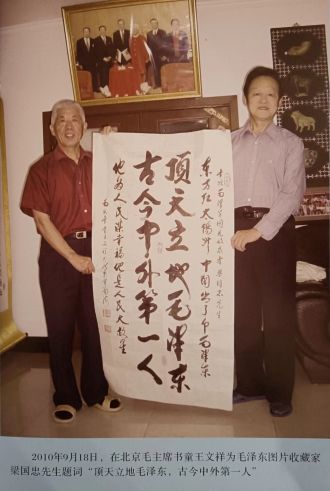 东方红太阳升中国出了个毛泽东
頂天立地毛泽东
古今中外第一人
他为人民谋幸福他是人民大救星
2010年9月18日，在北京毛主席书童王文祥为毛泽东图片收藏家
梁国忠先生题词“顶天立地毛泽东，古今中外第一人”